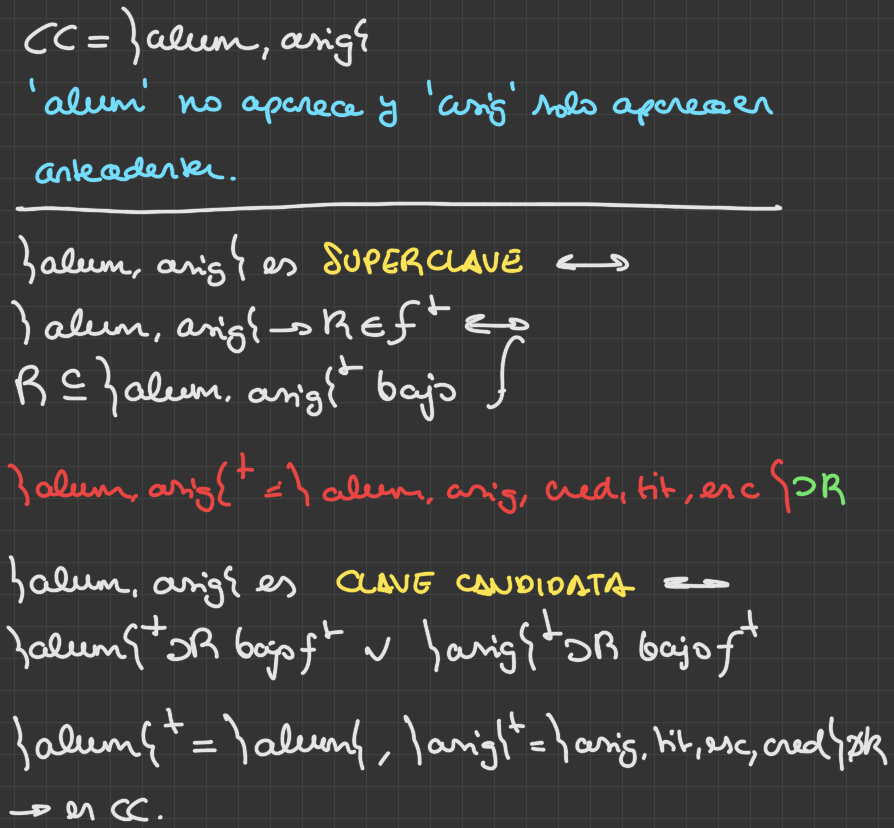 CC = }alum, asig{
'alum' no aparece y 'asig' solo aparece en
antecedentes.
}alum, asig{ es SUPERCLAVE ⟷
}alum, asig{ → R ∈ f⁺ ⟷
R ⊆ }alum, asig{⁺ bajo f
}alum, asig{⁺ = }alum, asig, cred, tit, esc{ ⊃R
}alum, asig{ es CLAVE CANDIDATA ⟷
}alum{⁺ ⊃R bajo f⁺ ∨ }asig{⁺ ⊃R bajo f⁺
}alum{⁺ = }alum{, }asig{⁺ = }asig, tit, esc, cred{ ⊅R
→ es CC.